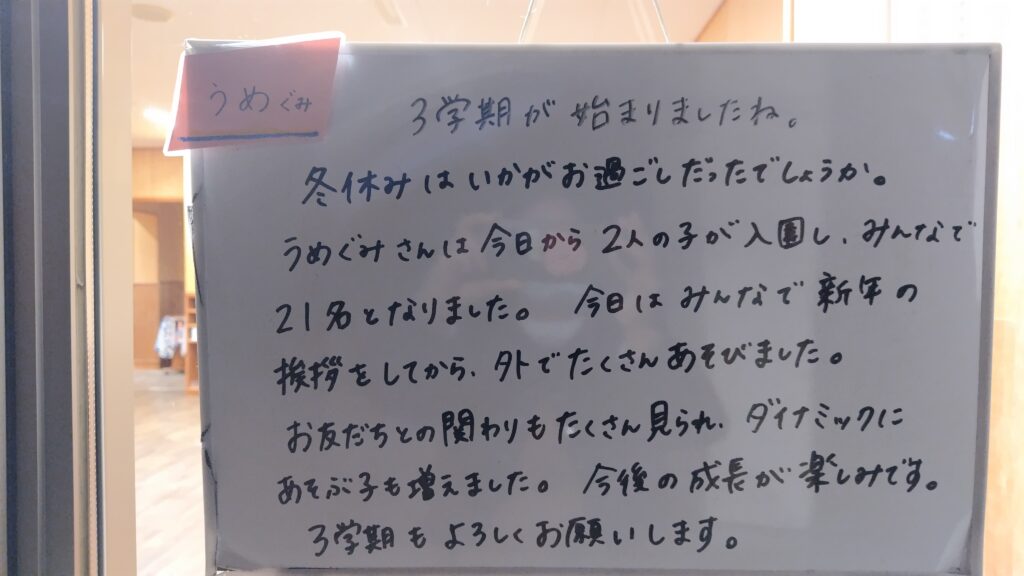 うめぐみ
3学期が始まりましたね。
冬休みはいかがお過ごしだったでしょうか。
うめぐみさんは今日から2人の子が入園し、みんなで
21名となりました。 今日はみんなで新年の
挨拶をしてから、外でたくさんあそびました。
お友だちとの関わりもたくさん見られ、ダイナミックに
あそぶ子も増えました。 今後の成長が楽しみです。
3学期もよろしくお願いします。